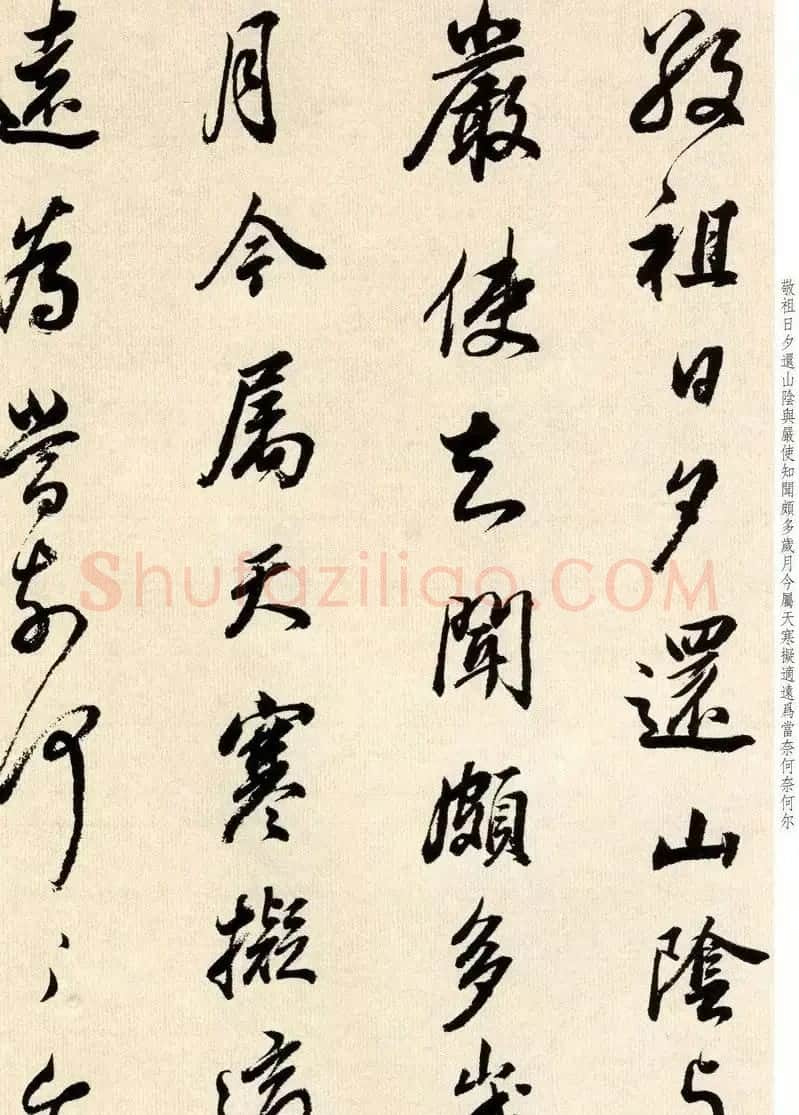 敬祖日夕還山陰与
嚴使知聞頗多歲
月今属天寒擬適
遠為當奈何〻尔
敬祖日夕還山陰與嚴使知聞頗多歲月今屬天寒擬適遠爲當奈何奈何尔
Shufaziliao.COM